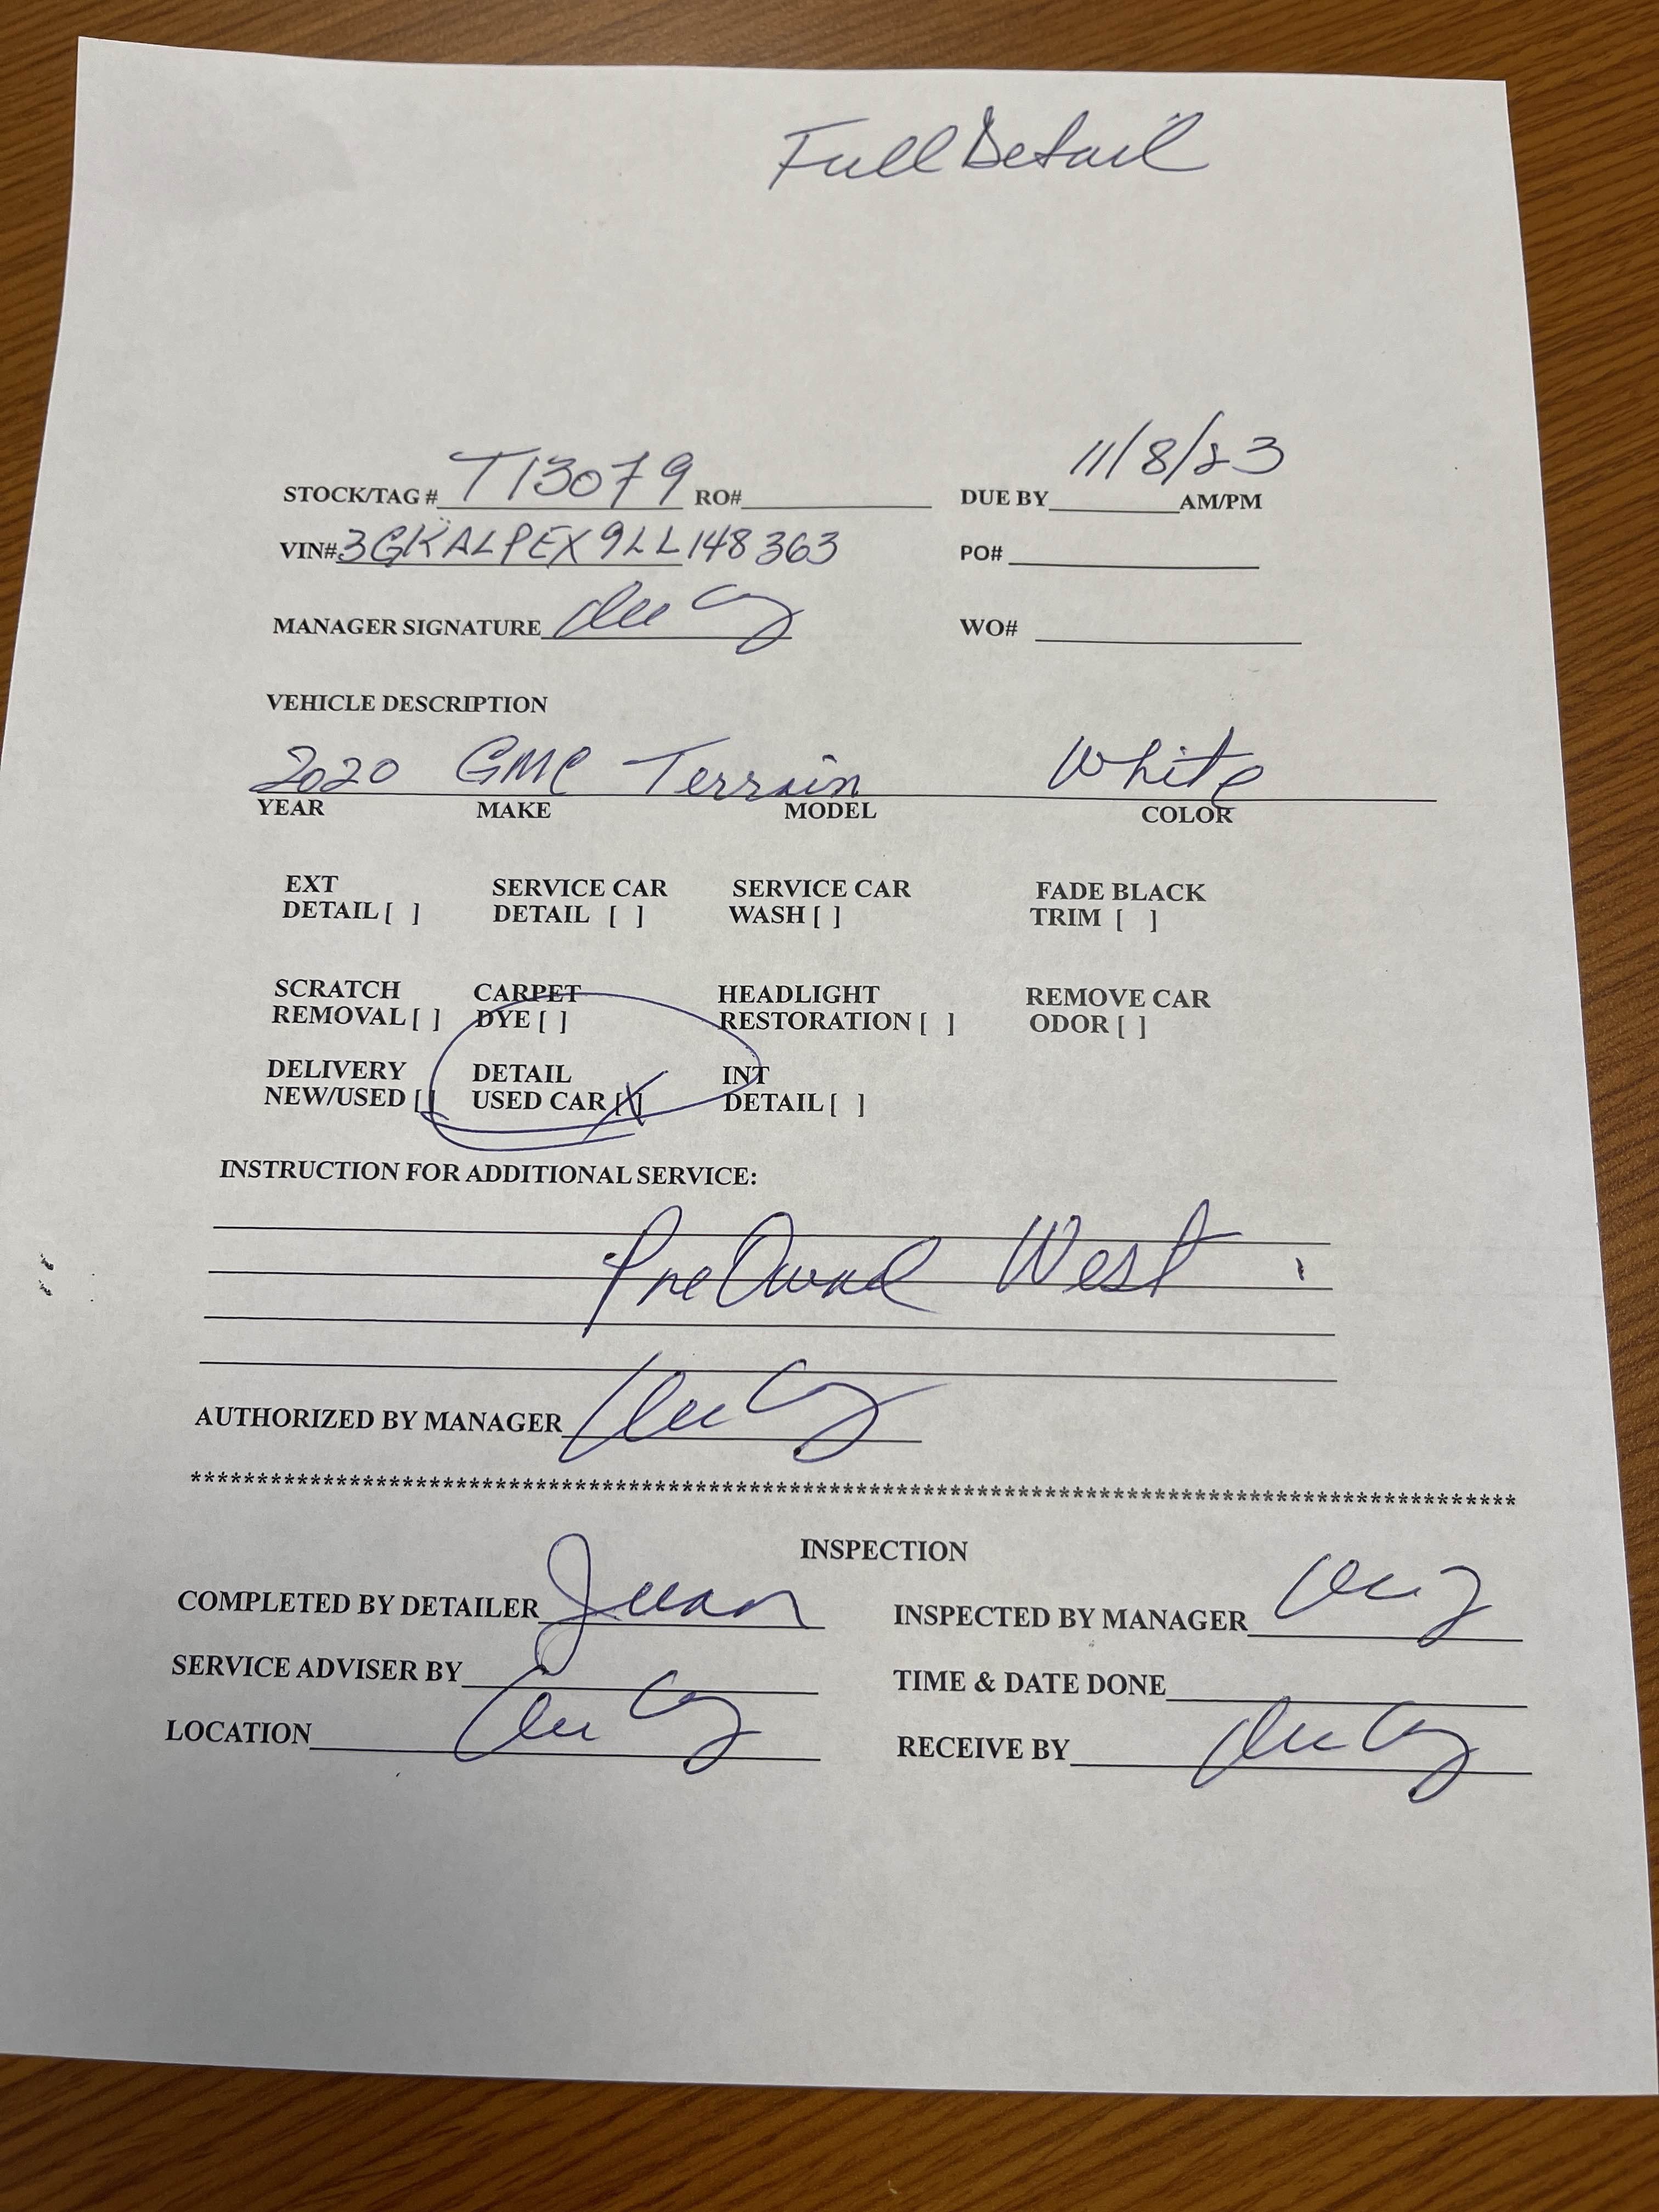 Full Detail
STOCK/TAG # T13079 RO# DUE BY 11/8/23 AM/PM
VIN# 3GKALPEX9LL148363 PO#
MANAGER SIGNATURE WO#
VEHICLE DESCRIPTION
2020 GMC Terrain White
YEAR MAKE MODEL COLOR
EXT SERVICE CAR SERVICE CAR FADE BLACK
DETAIL [ ] DETAIL [ ] WASH [ ] TRIM [ ]
SCRATCH CARPET HEADLIGHT REMOVE CAR
REMOVAL [ ] DYE [ ] RESTORATION [ ] ODOR [ ]
DELIVERY DETAIL INT
NEW/USED [ ] USED CAR [X] DETAIL [ ]
INSTRUCTION FOR ADDITIONAL SERVICE:
PreOwned West
AUTHORIZED BY MANAGER
****************************************************************************************************
INSPECTION
COMPLETED BY DETAILER Juan INSPECTED BY MANAGER
SERVICE ADVISER BY TIME & DATE DONE
LOCATION RECEIVE BY